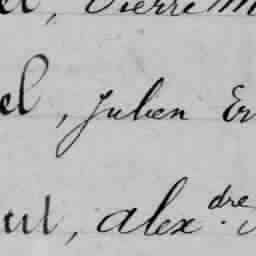 el, Pierre M
el, Julien Er
ul, Alex.dre